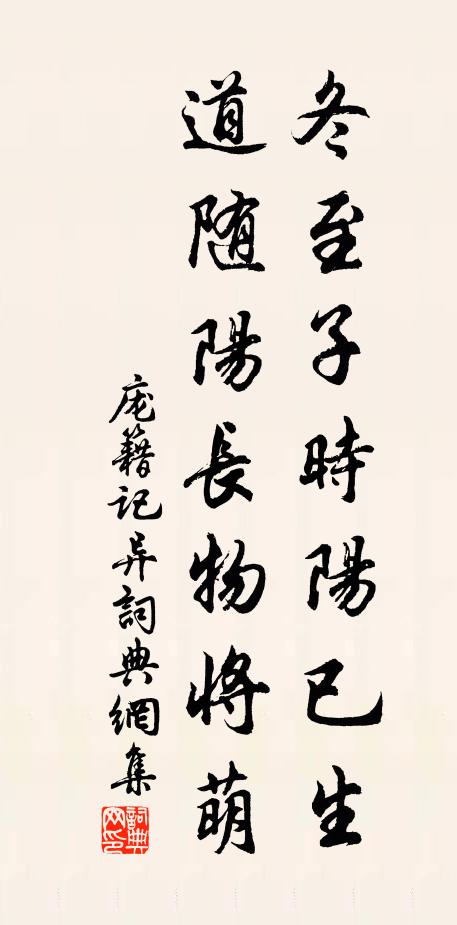 冬至子時陽已生
道随陽長物將萌
庞籍記异詞典網集
詞典
网印